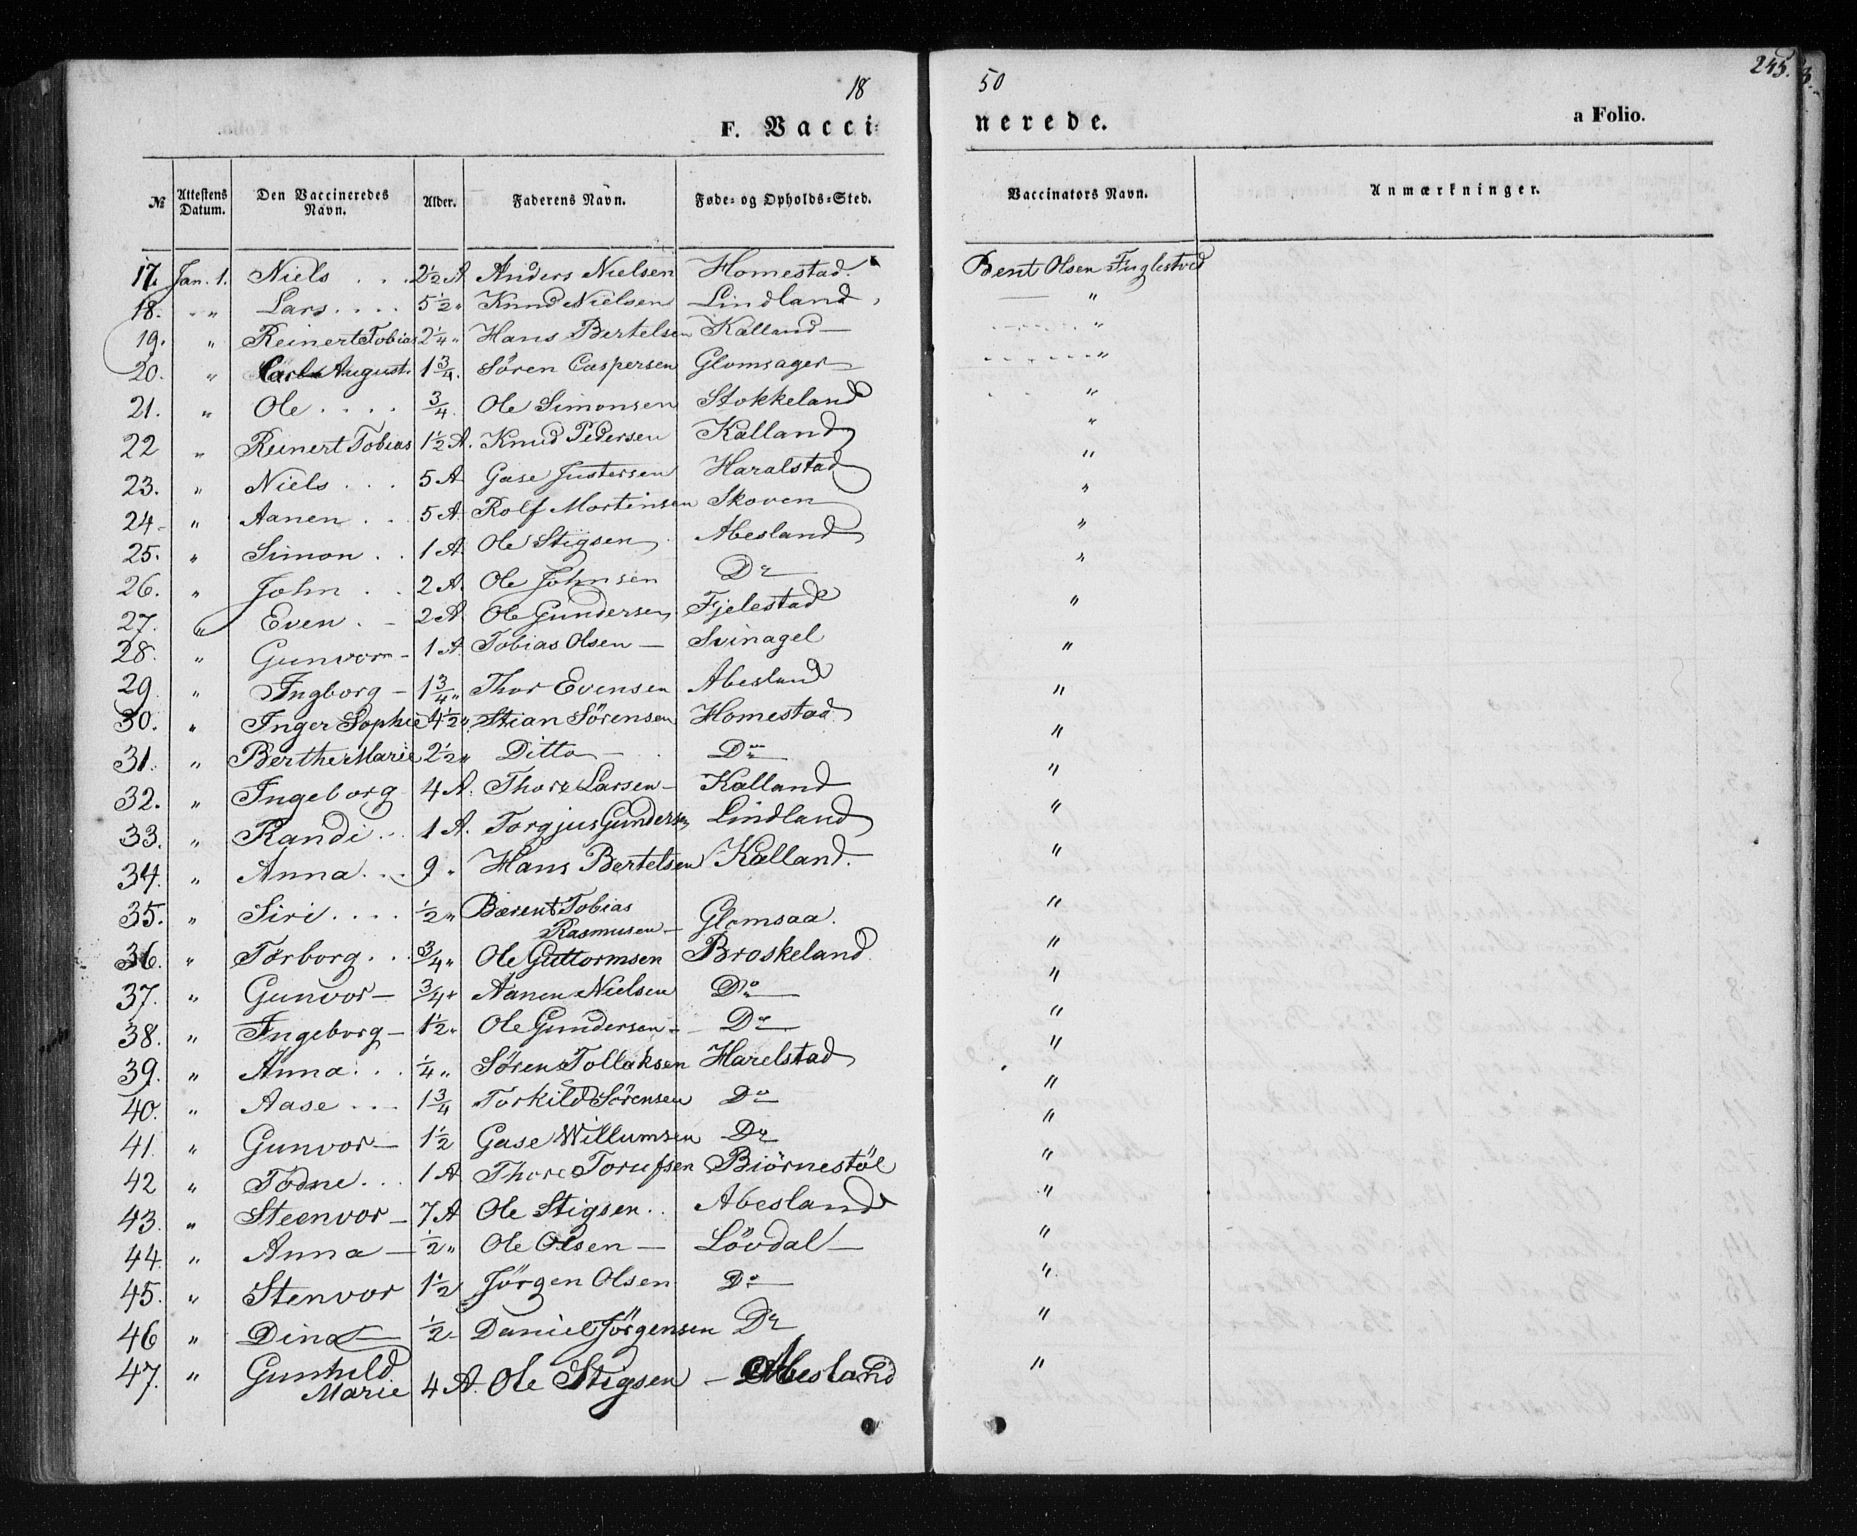 18 50 245.
F. Vacci- nerede. a Folio.
№ Attestens Datum. Den Vaccineredes Navn. Alder. Faderens Navn. Føde- og Opholds-Sted. Vaccinators Navn. Anmærkninger.
17. Jan. 1. Niels . . . 2½ A Anders Nielsen Homestad. Bent Olsen Fuglestved
18. " Lars . . . . 5½ " Knud Nielsen Lindland "
19. " Reinert Tobias 2¼ " Hans Bertelsen Kalland — "
20. " Carl August. 1¾. Søren Caspersen Glomsager "
21. " Ole . . . . ¾. Ole Simonsen Stokkeland "
22 " Reinert Tobias 1½ A. Knud Pedersen Kalland "
23. " Niels . . . 5 A Gase Justersen Haralstad "
24. " Aanen . . 5 A. Rolf Mortensen Skoven "
25. " Simon . . 1 A. Ole Stigsen Abesland "
26. " John . . 2 A. Ole Johnsen Do "
27. " Even . - 2 A. Ole Gundersen Fjelestad "
28. " Gunvor - 1 A. Tobias Olsen — Svinagel "
29. " Ingborg - 1¾ " Thor Evensen Abesland "
30. " Inger Sophie 4½ " Stian Sørensen Homestad "
31. " Berthe Marie 2½ " Ditto — Do "
32. " Ingeborg 4 A. Thore Larsen - Kalland "
33. " Randi . . 1 A. Torgjus Gundersen Lindland "
34. " Anna . . . 9 " Hans Bertelsen Kalland. "
35. " Siri . . . . ½ " Bærent Tobias
Rasmusen - Glomsaa. "
36. " Torborg . . . ¾ " Ole Guttormsen Broskeland. "
37. " Gunvor — ¾ " Aanen Nielsen Do "
38. " Ingeborg - 1½ " Ole Gundersen - Do "
39. " Anna . . . ¼ " Søren Tollaksen Harelstad "
40. " Aase . . . 1¾ Torkild Sørensen Do "
41. " Gunvor — 1½ Gase Willumsen Do "
42 " Todne . . . 1 A Thore Torufsen Biörnestöl "
43. " Steenvor - 7 A Ole Stigsen . . Abesland "
44. " Anna — ½ " Ole Olsen — Lövdal — "
45. " Stenvor 1½ Jörgen Olsen Do "
46 " Dina ½ - Daniel Jörgensen Do "
47. " Gunhild
Marie 4 A. Ole Stigsen — Abesland "